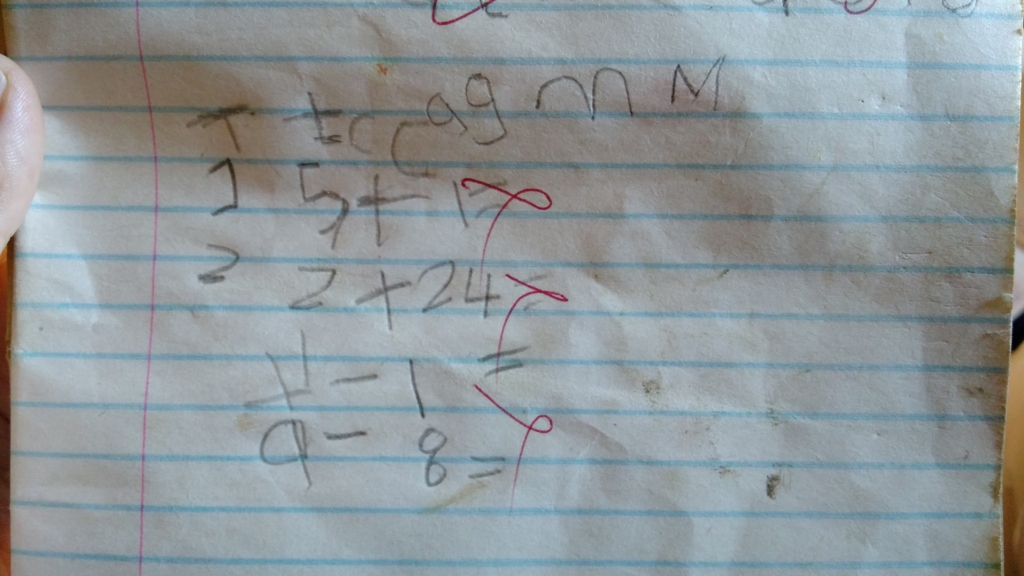 T t c C a g m M
1 5 + 1 =
2 2 + 24 =
11 - 1 =
9 - 8 =